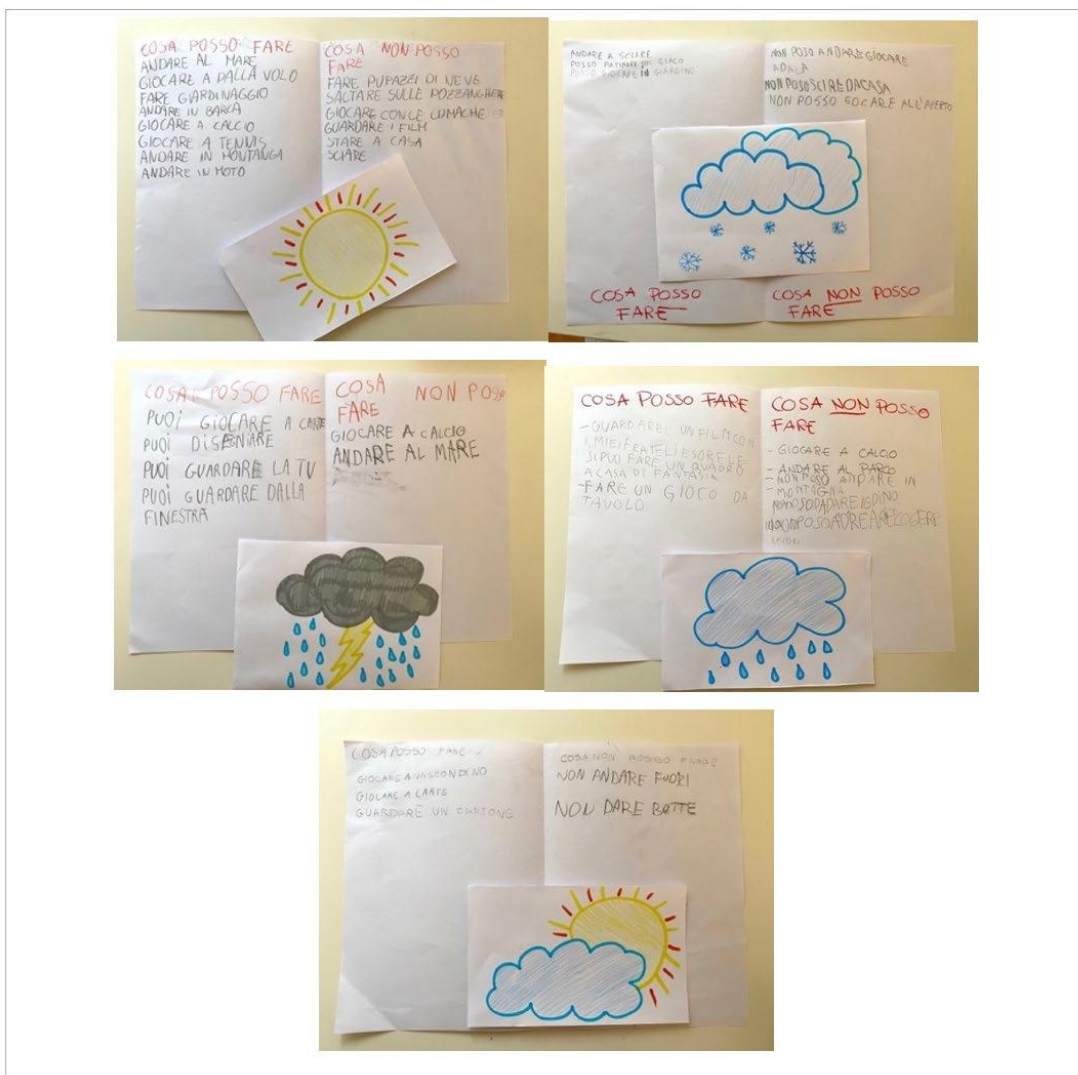 COSA POSSO FARE
ANDARE AL MARE
GIOCARE A PALLA VOLO
FARE GIARDINAGGIO
ANDARE IN BARCA
GIOCARE A CALCIO
GIOCARE A TENNIS
ANDARE IN MONTANGA
ANDARE IN MOTO
COSA NON POSSO
FARE
FARE PUPAZZI DI NEVE
SALTARE SULLE POZZANGHERE
GIOCARE CON LE LUMACHE
GUARDARE I FILM
STARE A CASA
SCIARE
ANDARE A SCIARE
POSSO
POSSO GIOCARE IN GIARDINO
NON POSO ANDARE GIOCARE
NON POSO SCIRE DACASA
NON POSSO GOCARE ALL'APERTO
COSA POSSO
FARE
COSA NON POSSO
FARE
COSA POSSO FARE
PUOI GIOCARE A CARTE
PUOI DISEGNIARE
PUOI GUARDARE LA TV
PUOI GUARDARE DALLA
FINESTRA
COSA NON POSSO
FARE
GIOCARE A CALCIO
ANDARE AL MARE
COSA POSSO FARE
- GUARDARE UN FILM CON
I MIEI FRATELI ESORELE
SI PUO FARE UN QUADRO
A CASA DI FANTASIA
- FARE UN GIOCO DA
TAVOLO
COSA NON POSSO
FARE
- GIOCARE A CALCIO
- ANDARE AL PARCO
- NON POSO ANDARE IN
- MONTAGNA
COSA POSSO FARE
GIOCARE A NASCONDINO
GIOCARE A CARTE
GUARDARE UN CARTONE
COSA NON POSSO
NON ANDARE FUORI
NON DARE BOTTE